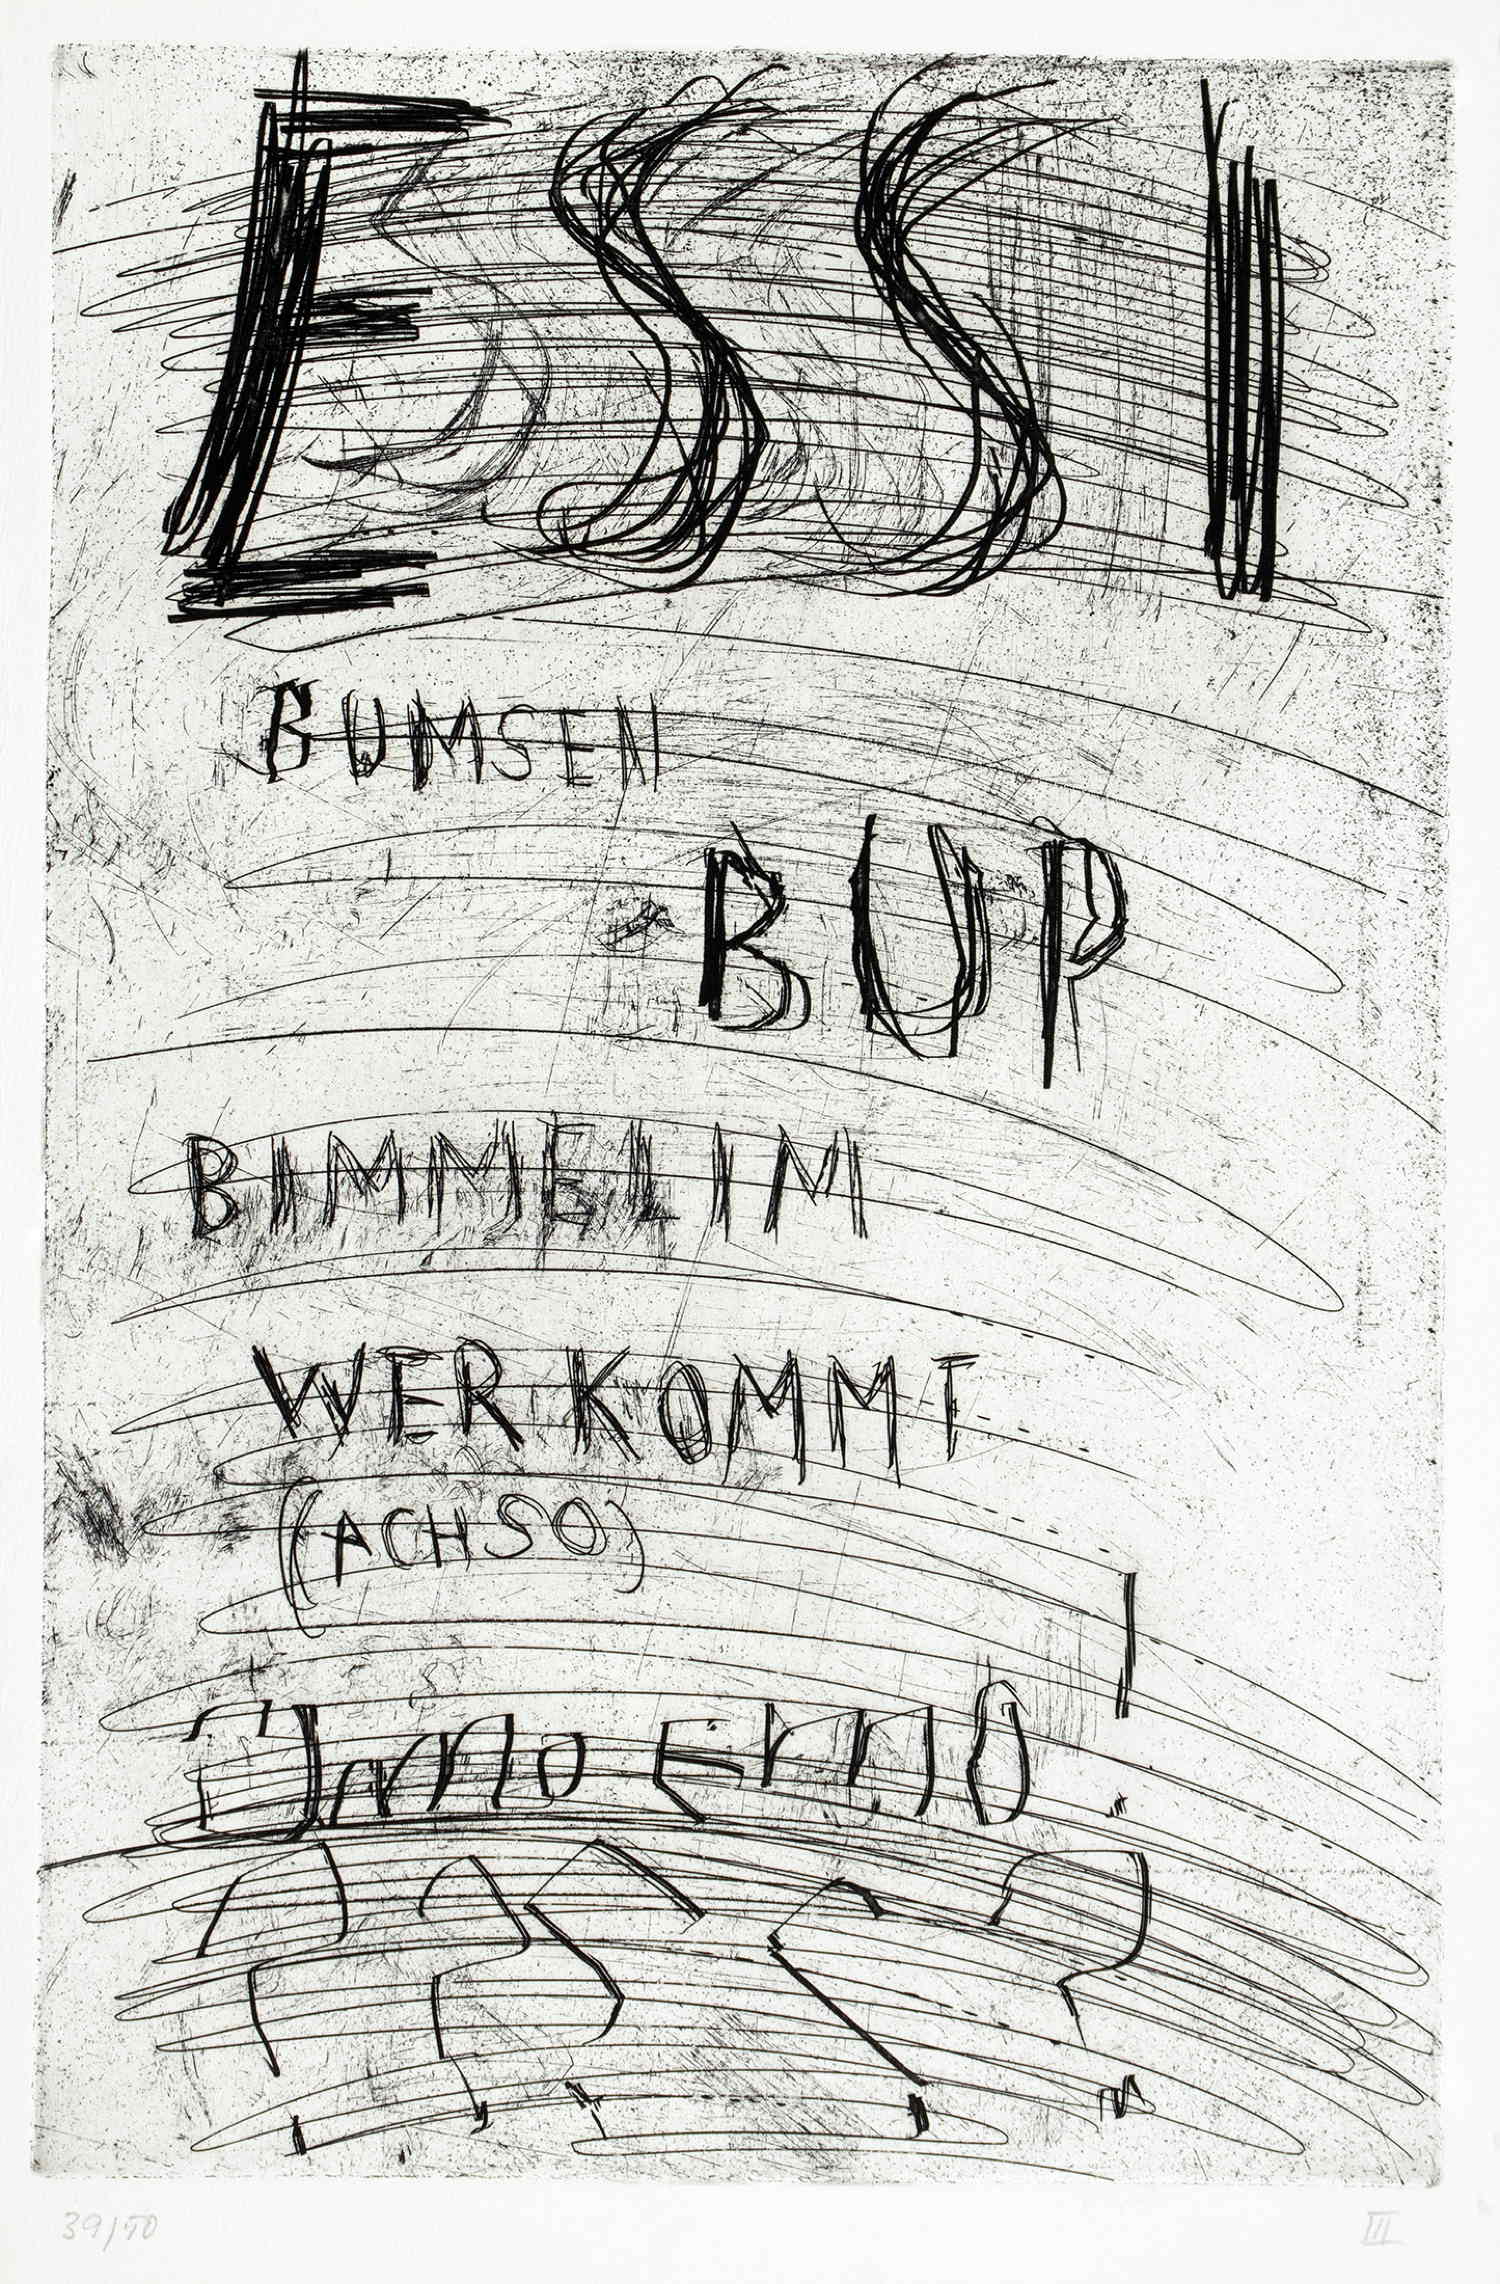 ESSI
BUMSEN
BUP
BIMMELIM
WER KOMMT
(ACHSO)
?????
39/50 III